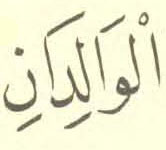 الْوَالِدَانِ